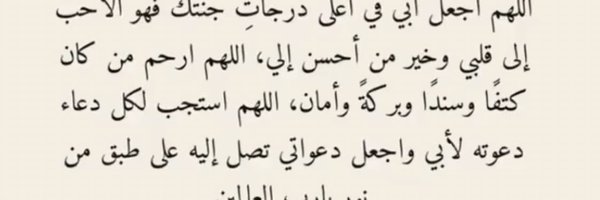 اللهم اجعل أبي في أعلى درجاتِ جنتك فهو الأحب
إلى قلبي وخير من أحسن إلي، اللهم ارحم من كان
كتفًا وسندًا وبركةً وأمان، اللهم استجب لكل دعاء
دعوته لأبي واجعل دعواتي تصل إليه على طبق من
نور يارب العالمين